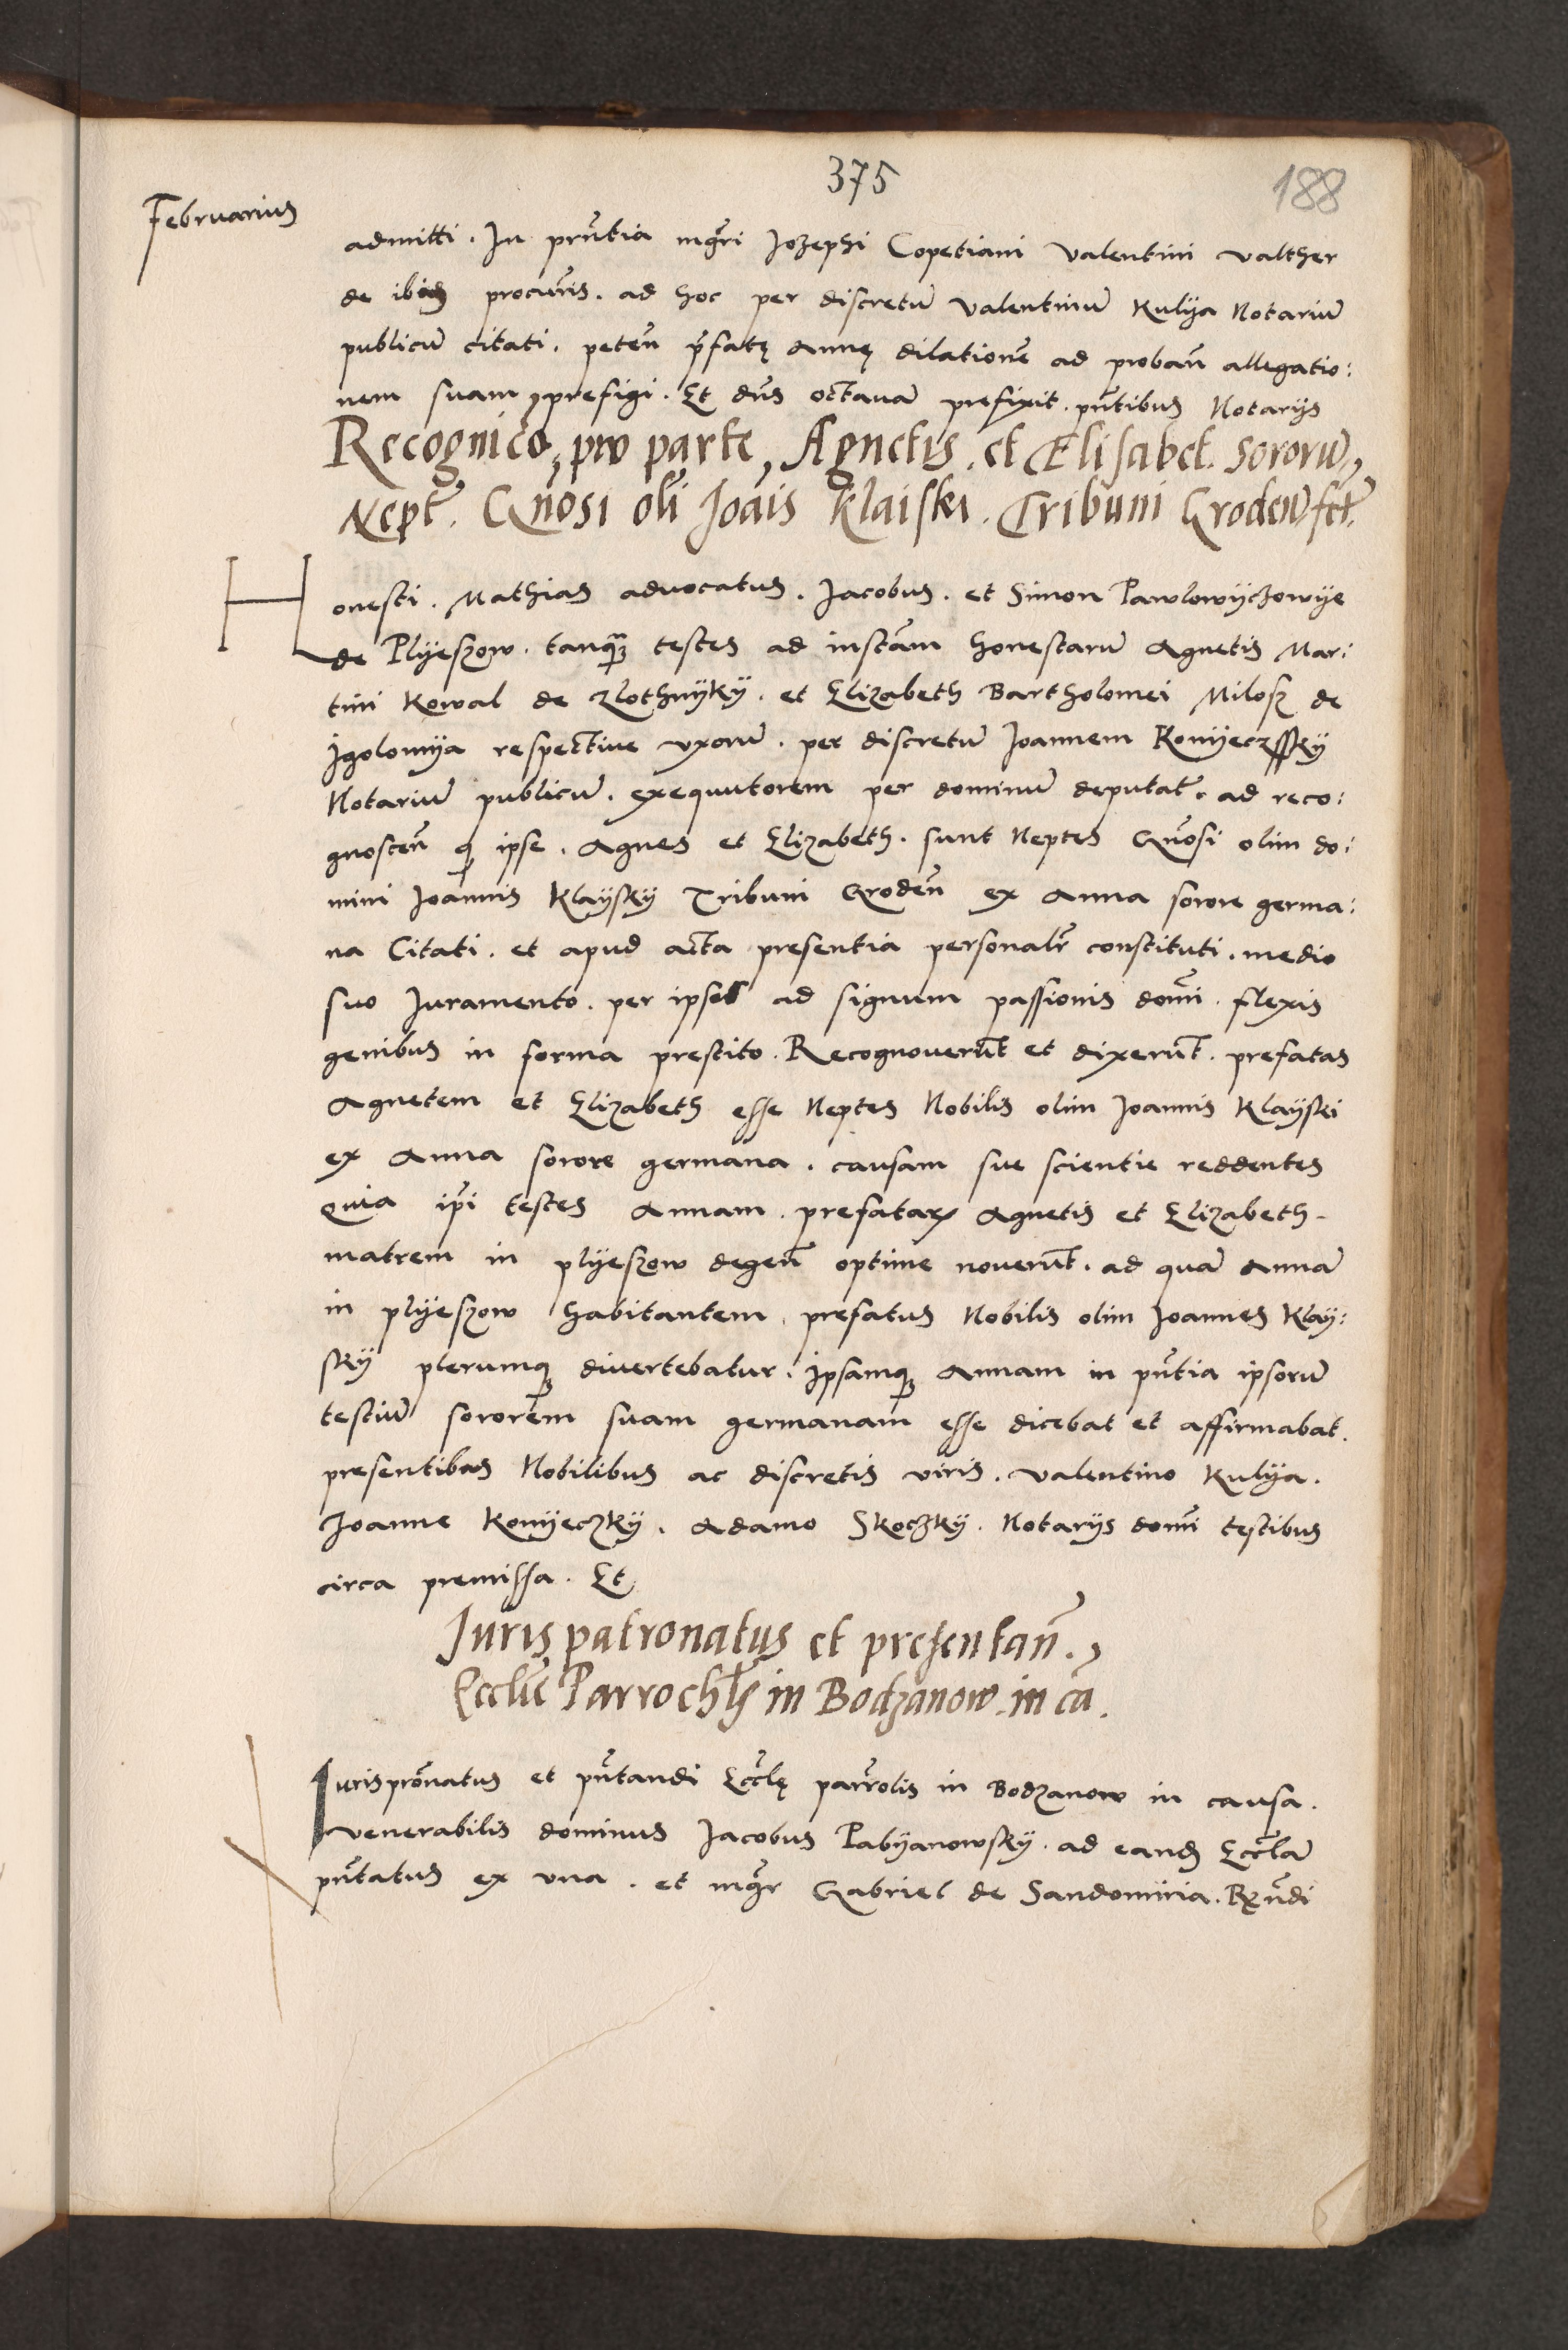 375
188
Februarius
admitti. In pñtia mgri Jozephi Copetiani Valentini Valther
de ibid procuris. ad hoc per discretū Valentinū Kulya Notariū
publicū citati. peteñ p̄fatę Annę dilationē ad probañ allegatio:
nem suam, prefigi. Et dñs octavā prefixit. pñtibus Notarijs
Recognico, pro parte, Agnetis. et Elisabet. Sororū,
Nept. Gnosi oli Joāis Klaiski. Tribuni Grodeñ fct.
Honesti. Mathias advocatus. Jacobus. et Simon Pawlowyczowye
de Plyeszow. tanqꝫ testes ad instām honestarū Agnetis Mar:
tini Kowal de Zlothnyky. et Elizabeth Bartholomei Milosz de
Jgolomya respective uxorū. per discretū Joannem Konyeczssky
Notariū publicū. exequutorem per dominū deputat. ad reco:
gnosceñ q ipse. Agnes et Elizabeth. sunt Neptes Gnosi olim do:
mini Joannis Klaysky Tribuni Grodeñ ex Anna sorore germa:
na Citati. et apud acta presentia personalr constituti. medio
suo Juramento. per ipsos ad signum passionis domi. flexis
genibus in forma prestito. Recognoverūt et dixerūt. prefatas
Agnetem et Elizabeth esse Neptes Nobilis olim Joannis Klayski
ex Anna sorore germana. causam sue scientie reddentes
quia ipi testes Annam. prefatarꝝ Agnetis et Elizabeth
matrem in plyeszow degeñ optime noverūt. ad quā Annā
in plyeszow habitantem. prefatus Nobilis olim Joannes Klay:
sky plerumqꝫ divertebatur. Ipsamqꝫ Annam in pñtia ipsorū
testiū sororem suam germanam esse dicebat et affirmabat.
presentibus Nobilibus ac discretis viris. Valentino Kulya.
Joanne Konyeczky. Adamo Skoczky. Notarijs domi testibus
circa premissa. Et
Juris patronatus et presentañ.,
Ecclie Parrochlis in Bodzanow. in cā.
Jurispronatus et pñtandi Ecclę parrolis in Bodzanow in causa.
Venerabilis dominus Jacobus Pabyanowsky. ad eand Eccłā
pñtatus ex una. et mgr Gabriel de Sandomiria. Rxñdi